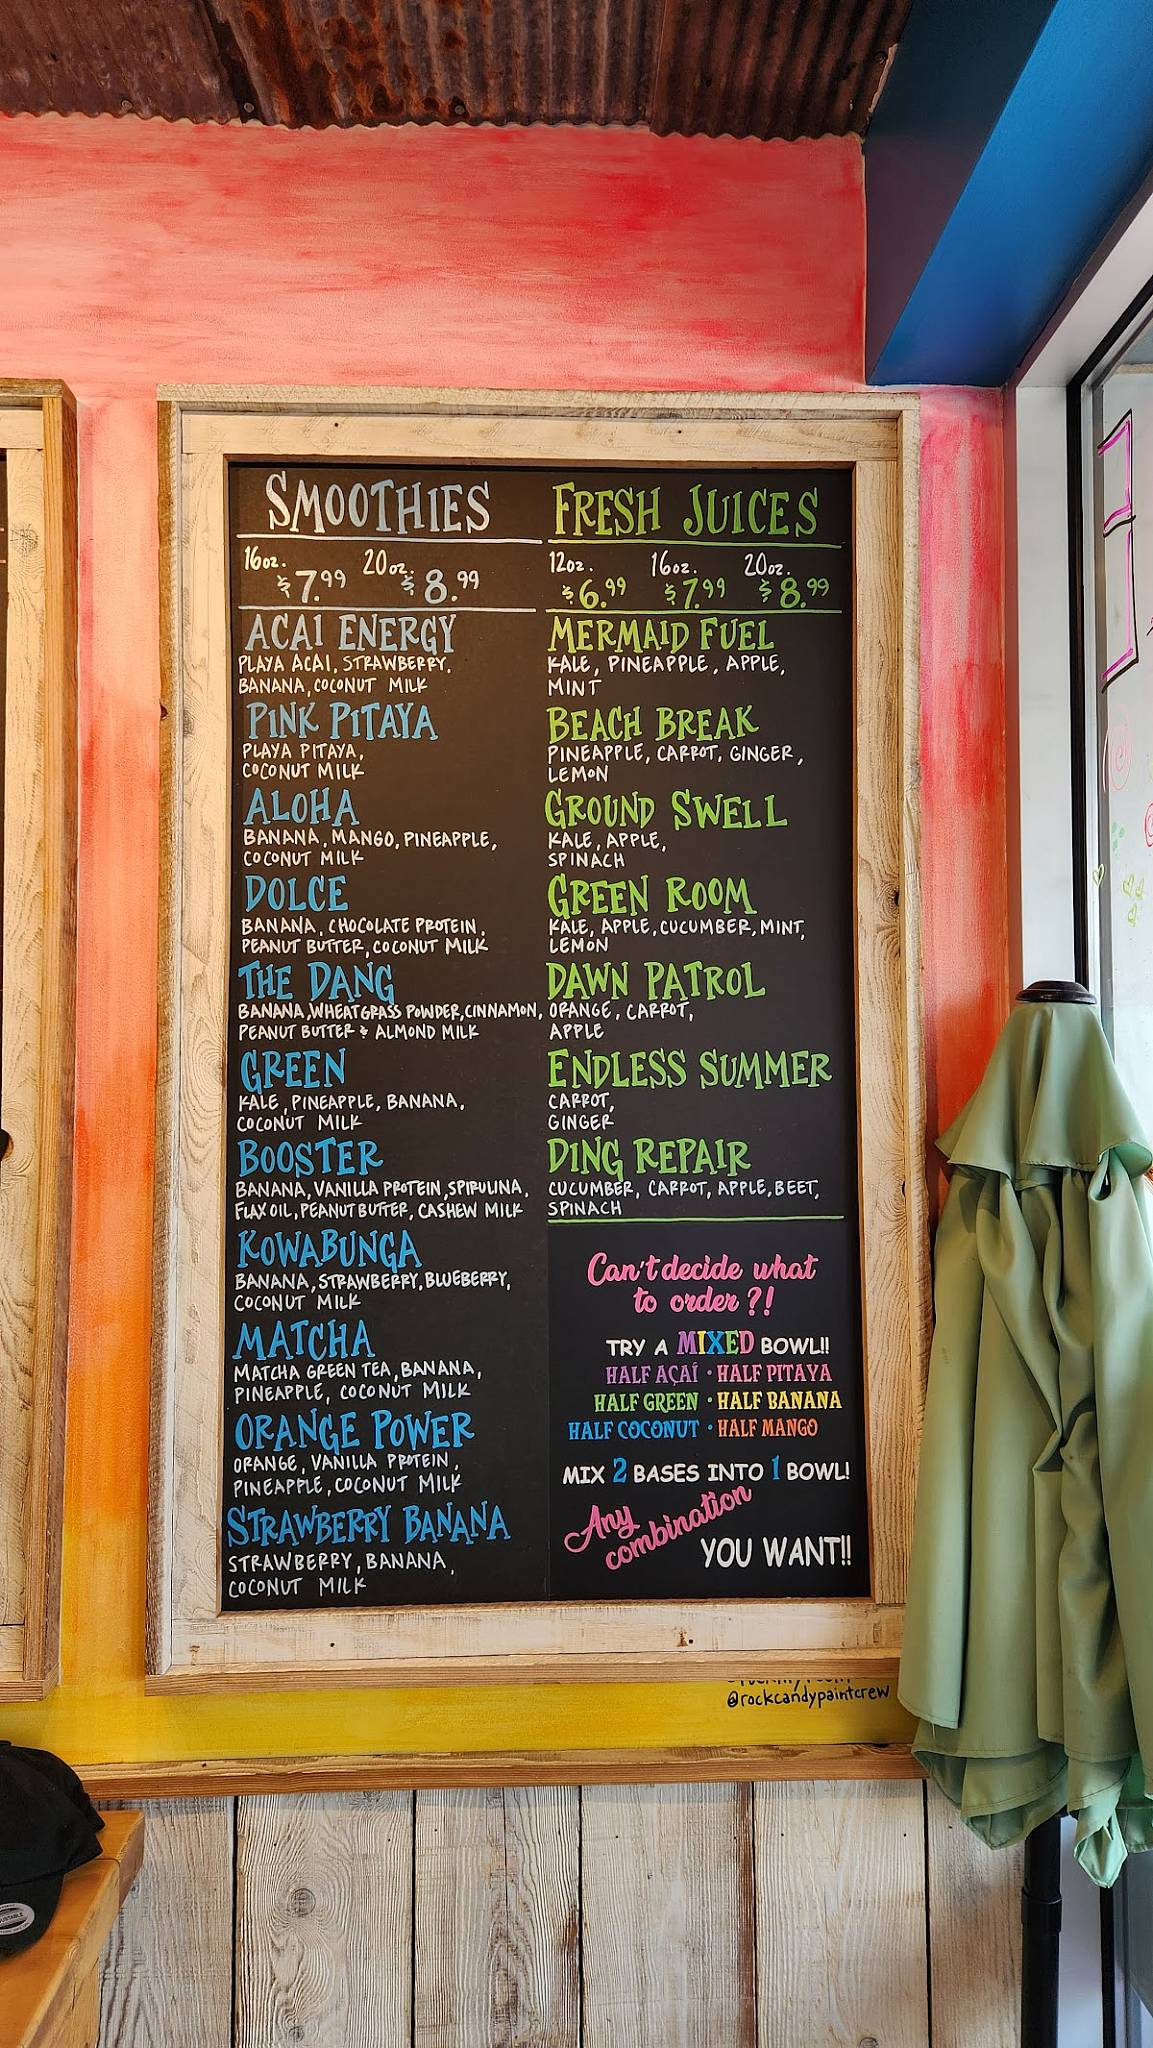 SMOOTHIES
16oz. $7.99 20oz. $8.99
ACAI ENERGY
PLAYA ACAI, STRAWBERRY,
BANANA, COCONUT MILK
PINK PITAYA
PLAYA PITAYA,
COCONUT MILK
ALOHA
BANANA, MANGO, PINEAPPLE,
COCONUT MILK
DOLCE
BANANA, CHOCOLATE PROTEIN,
PEANUT BUTTER, COCONUT MILK
THE DANG
BANANA, WHEATGRASS POWDER, CINNAMON,
PEANUT BUTTER & ALMOND MILK
GREEN
KALE, PINEAPPLE, BANANA,
COCONUT MILK
BOOSTER
BANANA, VANILLA PROTEIN, SPIRULINA,
FLAX OIL, PEANUT BUTTER, CASHEW MILK
KOWABUNGA
BANANA, STRAWBERRY, BLUEBERRY,
COCONUT MILK
MATCHA
MATCHA GREEN TEA, BANANA,
PINEAPPLE, COCONUT MILK
ORANGE POWER
ORANGE, VANILLA PROTEIN,
PINEAPPLE, COCONUT MILK
STRAWBERRY BANANA
STRAWBERRY, BANANA,
COCONUT MILK
FRESH JUICES
12oz. $6.99 16oz. $7.99 20oz. $8.99
MERMAID FUEL
KALE, PINEAPPLE, APPLE,
MINT
BEACH BREAK
PINEAPPLE, CARROT, GINGER,
LEMON
GROUND SWELL
KALE, APPLE,
SPINACH
GREEN ROOM
KALE, APPLE, CUCUMBER, MINT,
LEMON
DAWN PATROL
ORANGE, CARROT,
APPLE
ENDLESS SUMMER
CARROT,
GINGER
DING REPAIR
CUCUMBER, CARROT, APPLE, BEET,
SPINACH
Can't decide what
to order?!
TRY A MIXED BOWL!!
HALF AÇAÍ • HALF PITAYA
HALF GREEN • HALF BANANA
HALF COCONUT • HALF MANGO
MIX 2 BASES INTO 1 BOWL!
Any
combination
YOU WANT!!
@rockcandypaintcrew